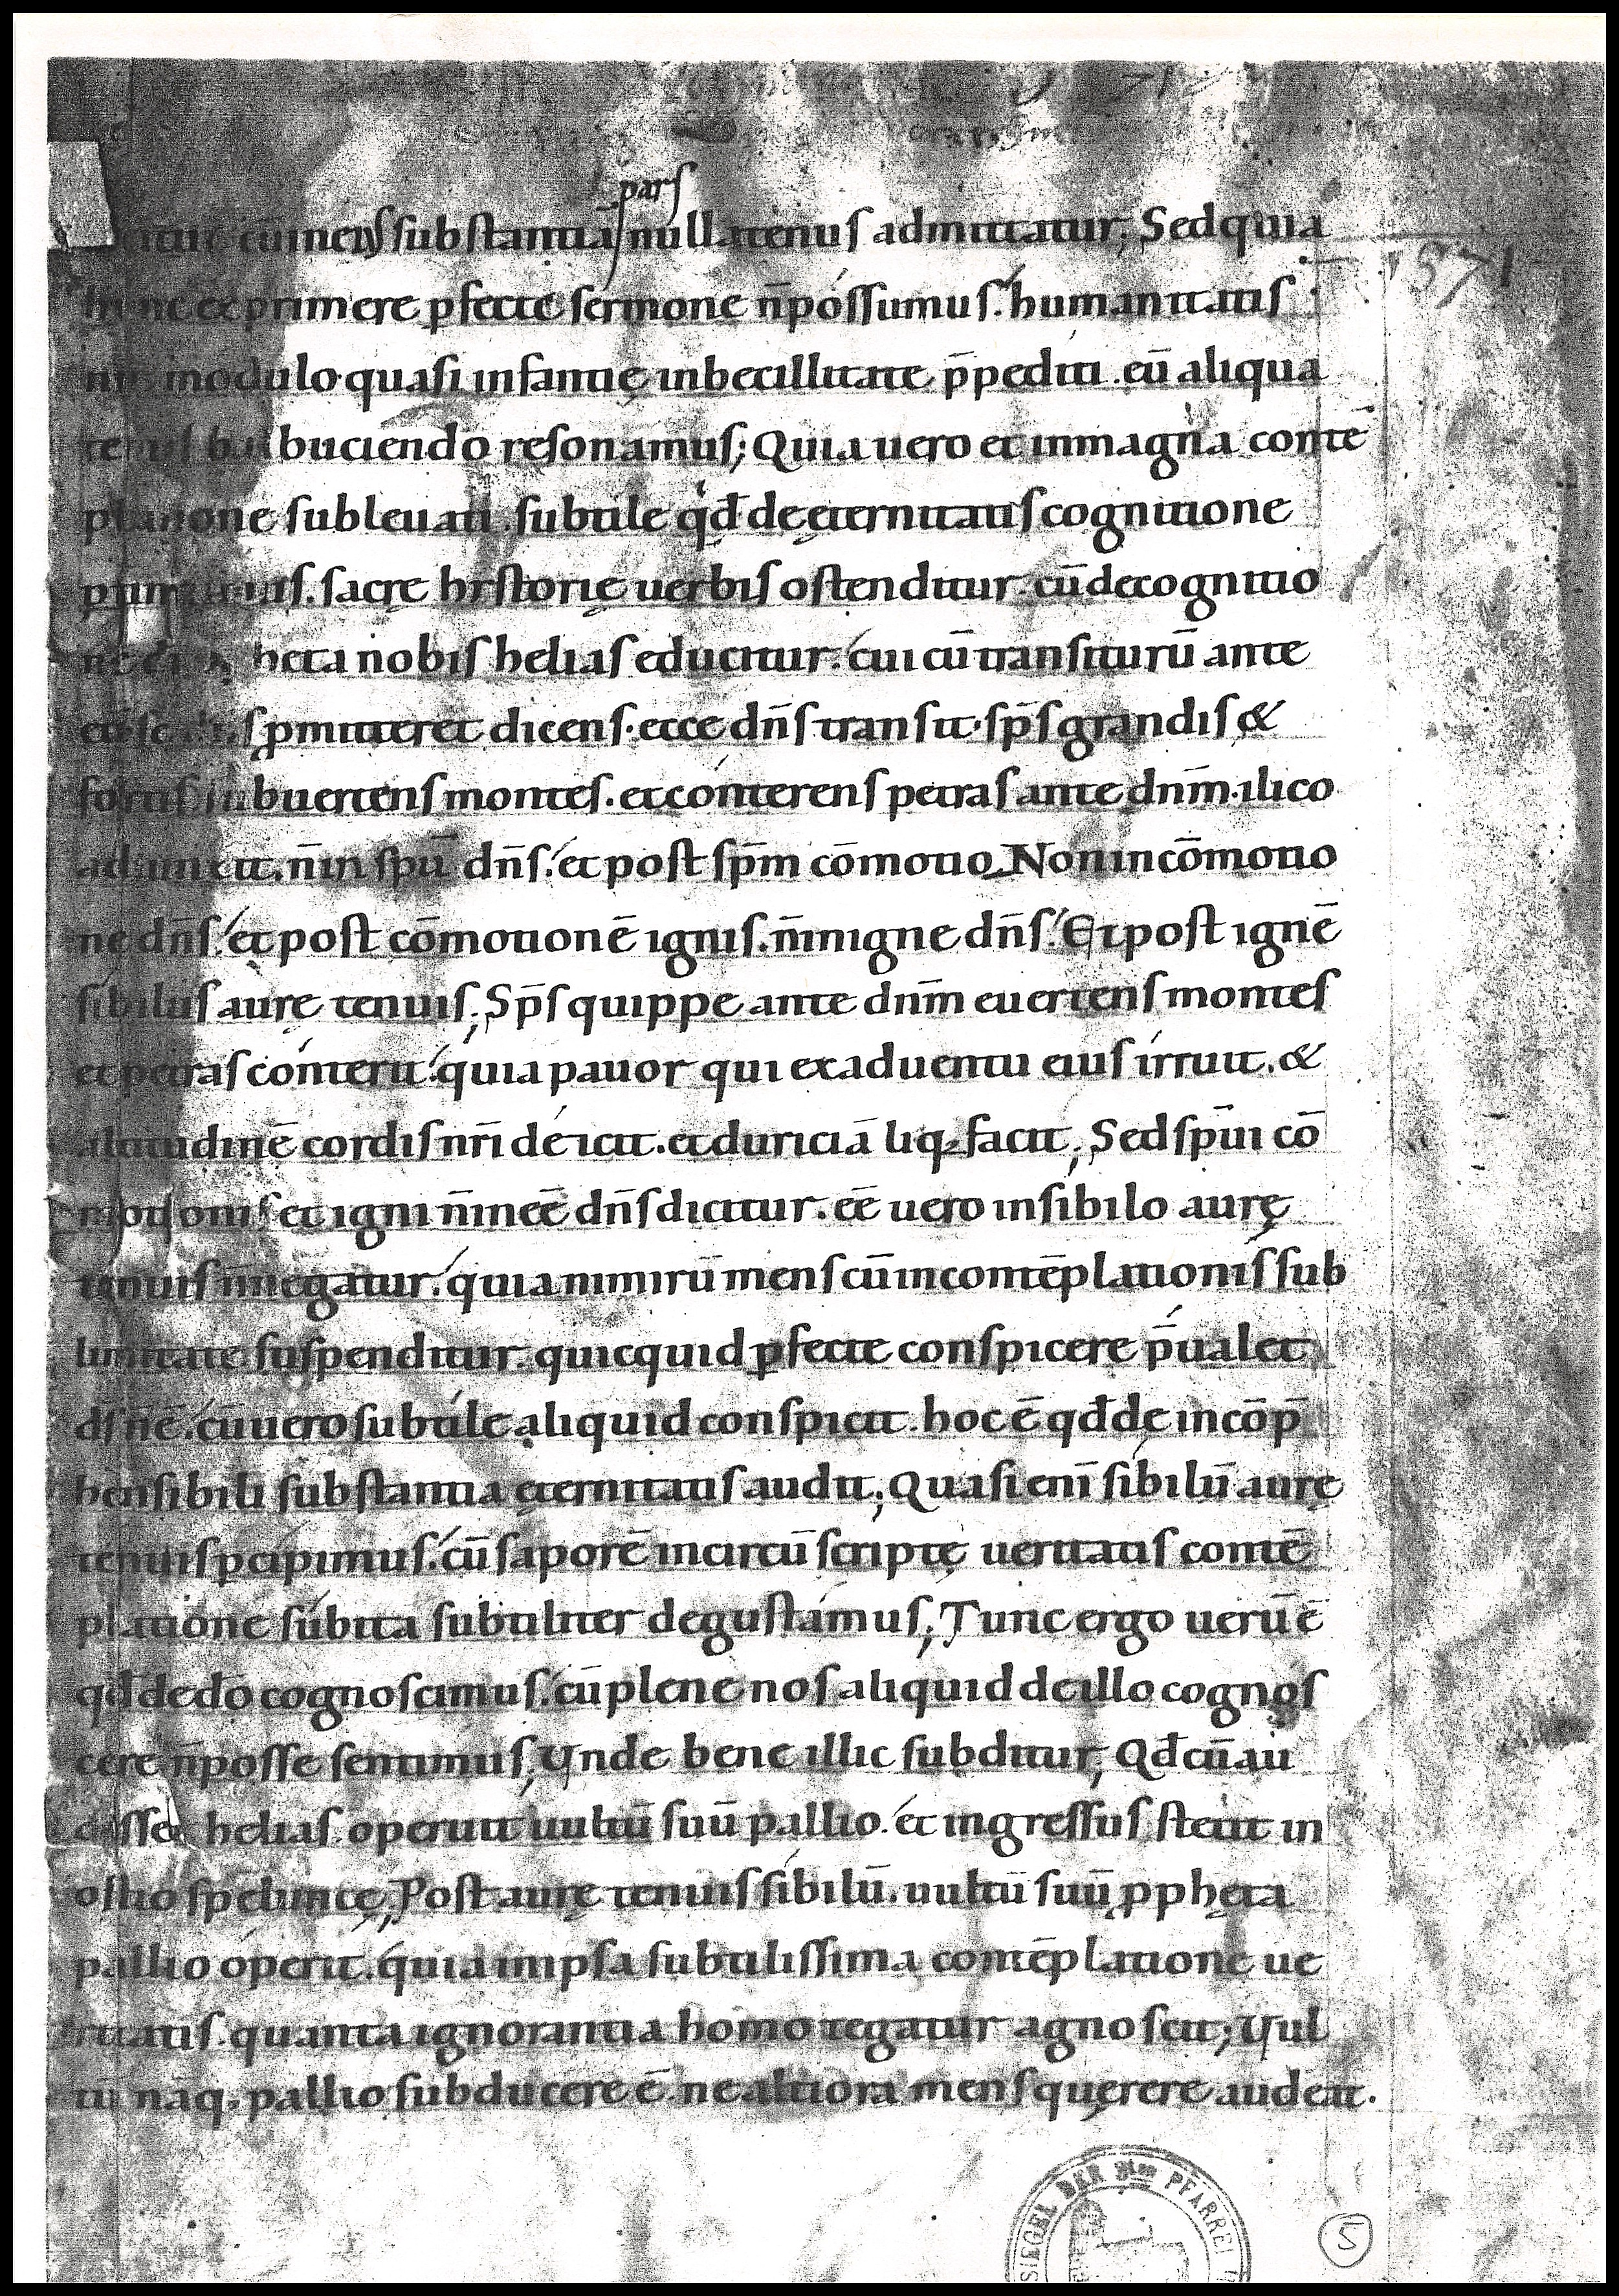 pars
cū inens substantiā nullatenus admittatur; Sed quia
hunc exprimere pfecte sermone n̄ possumus. humanitatis
modulo quasi infantię inbecillitate p̄pediti. eū aliqua
tenus balbuciendo resonamus; Quia uero et in magna contē
platione subleuati. subtile qd̄ de ęternitatis cognitione
sacrę hystorię uerbis ostenditur. cū de cognitio
heta nobis helias educitur. cui cū transiturū ante
pmitteret dicens. ecce dn̄s transit. sp̄s grandis &
fortis subuertens montes. et conterens petras ante dn̄m. ilico
adiunxit. n̄ in spū dn̄s. et post sp̄m cōmotio. Non in cōmotio
ne dn̄s. et post cōmotionē ignis. n̄ in igne dn̄s. Et post ignē
sibilus aurę tenuis; Sp̄s quippe ante dn̄m euertens montes
et petras conterit. quia pauor qui ex aduentu eius irruit. &
altitudinē cordis nr̄i deicit. et duriciā liq;facit; Sed sp̄ui cō
motionis et igni n̄ inee᷃ dn̄s dicitur. eē uero in sibilo aurę
tenuis n̄ negatur. quia nimirū mens cū in contēplationis sub
limitate suspenditur. quicquid pfecte conspicere p̄ualet
ds̄ n̄ ē. cū uero subtile aliquid conspicit. hoc ē qd̄ de incōp̄
hensibili substantia ęternitatis audit; Quasi enī sibilū aurę
tenuis pcipimus. cū saporē incircūscriptę ueritatis contē
platione subita subtiliter degustamus; Tunc ergo uerū ē
qd̄ de dō cognoscimus. cū plene nos aliquid de illo cognos
cere n̄ posse sentimus; Vnde bene illic subditur; Qd̄ cū au
disset helias. operuit uultū suū pallio. et ingressus stetit in
ostio speluncę; Post aurę tenuis sibilū. uultū suū ppheta
pallio operit. quia in ipsa subtilissima contēplatione ue
ritatis. quanta ignorantia homo tegatur agnoscit; Vul
tū nāq. pallio subducere ē. ne altiora mens quęrere audeat.
1571
SIEGEL DER PFARREI
5